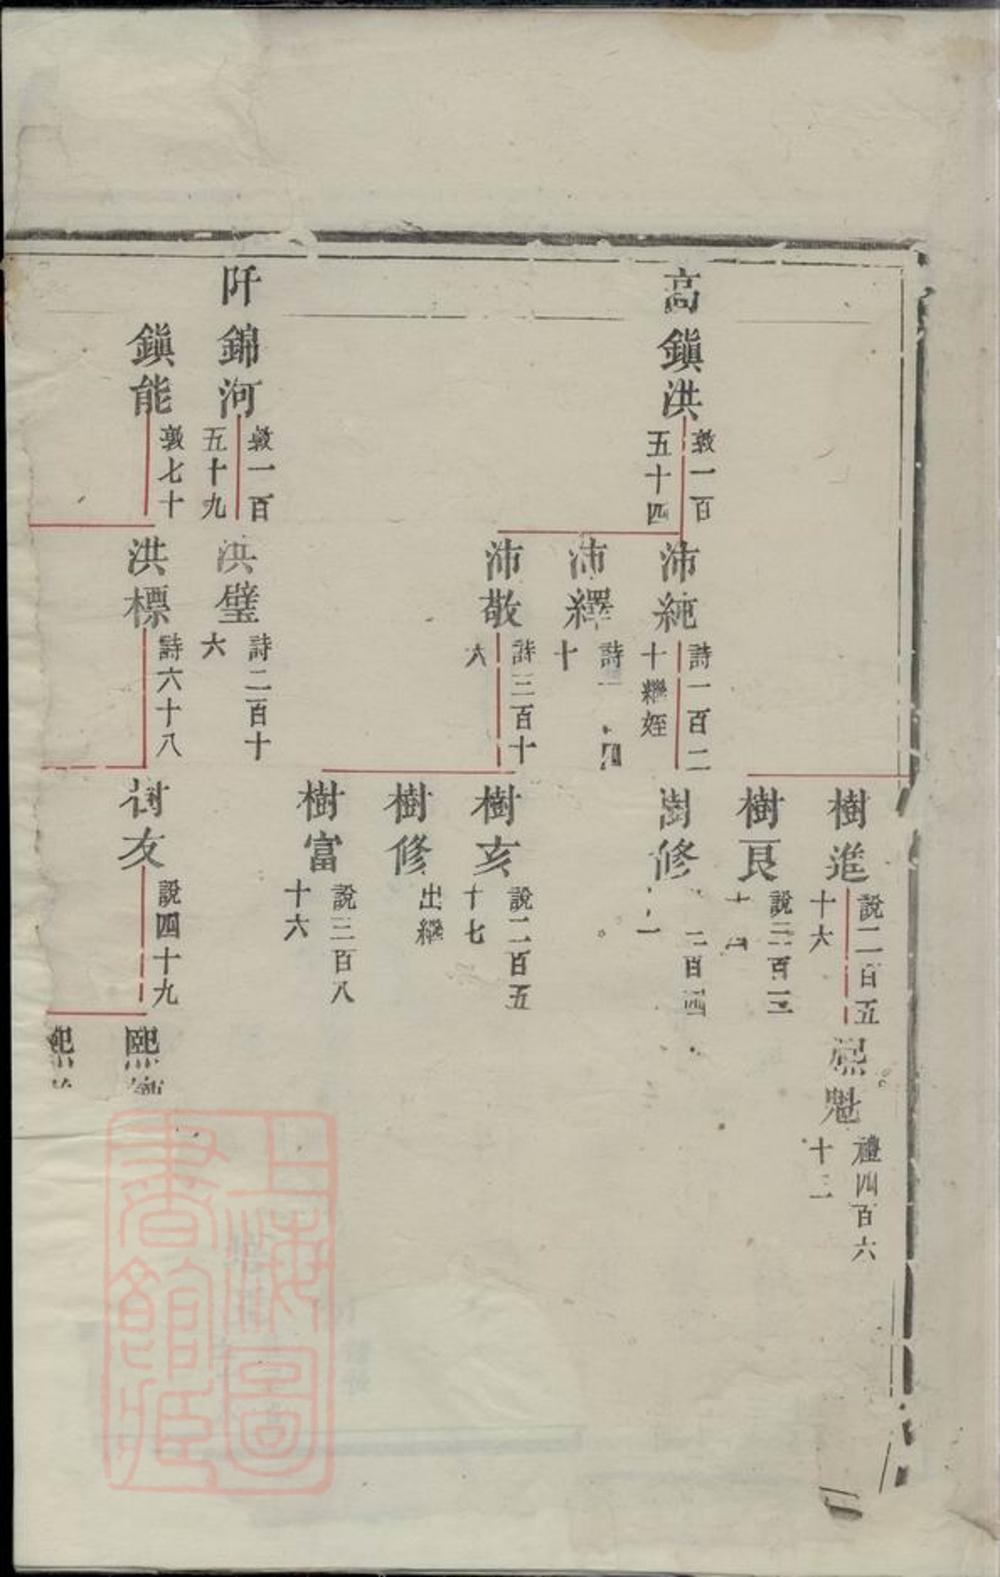 樹進
說二百五
十六
熙魁
禮四百六
十三
樹良
樹修
高鎮洪
敦一百
五十四
沛純
詩一百二
十繼姪
沛繹
沛敬
詩三百十
六
樹亥
說二百五
十七
樹修
出繼
樹富
說三百八
十六
阡錦河
敦一百
五十九
洪璧
詩二百十
六
鎮能
敦七十
洪標
詩六十八
樹友
說四十九
熙
熙
上海圖
書館藏